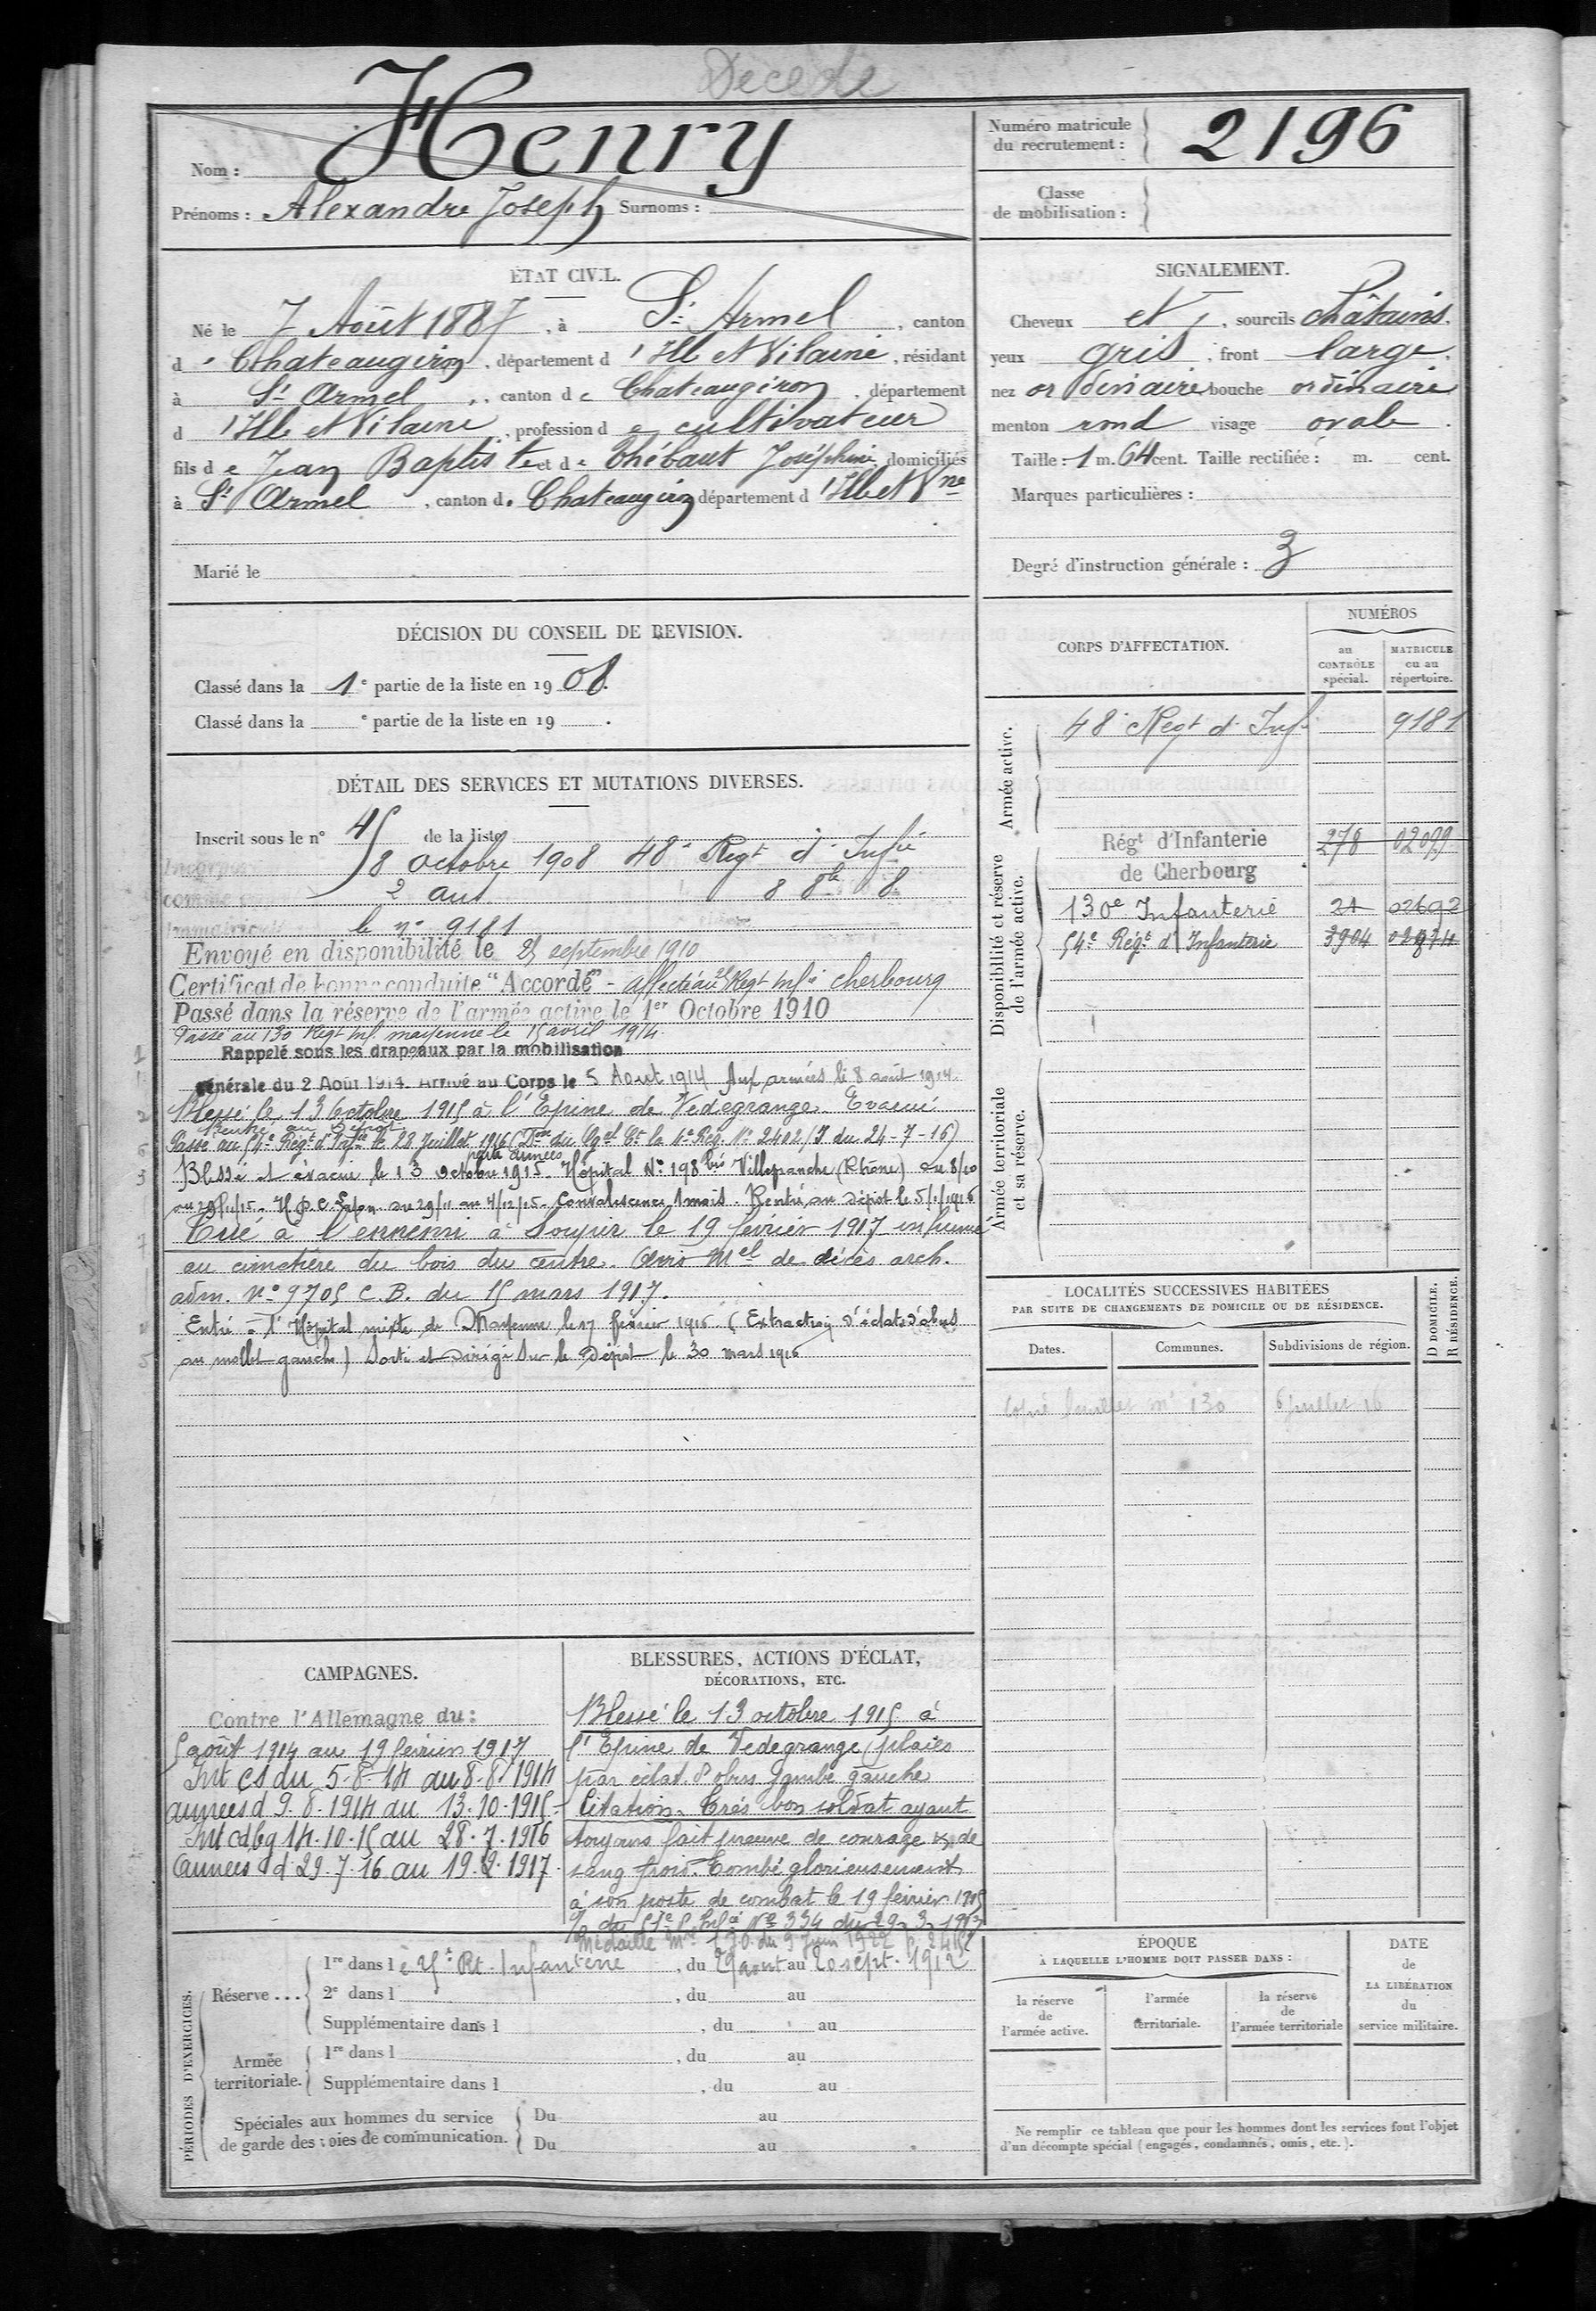 Décédé
Nom : Henry
Prénoms : Alexandre Joseph Surnoms :
Numéro matricule du recrutement : 2196
Classe de mobilisation :
ÉTAT CIVIL.
Né le 7 Août 1887, à St Armel, canton
de Chateaugiron, département d'Ille et Vilaine, résidant
à St Armel, canton de Chateaugiron, département
d'Ille et Vilaine, profession de cultivateur
fils de Jean Baptiste et de Thébaut Joséphine domiciliés
à St Armel, canton de Chateaugiron département d'Ille et Vne
Marié le
SIGNALEMENT.
Cheveux et, sourcils châtains,
yeux gris, front large,
nez ordinaire bouche ordinaire
menton rond visage ovale.
Taille : 1 m. 64 cent. Taille rectifiée : m. cent.
Marques particulières :
Degré d'instruction générale : 3
DÉCISION DU CONSEIL DE REVISION.
Classé dans la 1e partie de la liste en 1908.
Classé dans la e partie de la liste en 19 .
DÉTAIL DES SERVICES ET MUTATIONS DIVERSES.
Inscrit sous le n° 45 de la liste
8 octobre 1908 48e Regt d'Infie
2 ans 8 8bre 8
le n° 9181
Envoyé en disponibilité le 25 septembre 1910
Certificat de bonne conduite "Accordé" - affecté au 25 Regt Infie Cherbourg
Passé dans la réserve de l'armée active le 1er Octobre 1910
Passé au 130 Regt Inf. mayenne le 15 avril 1914.
Rappelé sous les drapeaux par la mobilisation
générale du 2 Août 1914. Arrivé au Corps le 5 Août 1914 Aux armées le 8 août 1914.
Blessé le 13 Octobre 1915 à l'Epine de Vedegrange. Evacué
Rentré au Dépôt
Passé au 54e Régt d'Infie le 28 Juillet 1916 (Don du Gal Ct la 4e Reg. N° 2402/J du 24-7-16)
parti armées
Blessé et évacué le 13 octobre 1915 - Hôpital N° 198 bis Villefranche (Rhône) du 8/10
au 29/11/15 - H.D.C. Salon du 29/11 au 4/12/15 - Convalescence 1 mois. Rentré au dépôt le 5/1/1916
Tué à l'ennemi à Soupir le 19 février 1917 inhumé
au cimetière du bois du centre. Avis Mel de décès arch.
adm. N° 9705 C.B. du 15 mars 1917.
Entré à l'Hôpital mixte de Mayenne le 17 février 1916 (Extraction d'éclats d'obus
au mollet gauche) Sorti et dirigé sur le Dépôt le 30 mars 1916
CORPS D'AFFECTATION.
NUMÉROS
au CONTRÔLE spécial.
MATRICULE ou au répertoire.
Armée active.
48e Regt d'Infie 9181
Disponibilité et réserve de l'armée active.
Régt d'Infanterie 278 02099
de Cherbourg
130e Infanterie 21 02692
54e Régt d'Infanterie 3904 02874
Armée territoriale et sa réserve.
LOCALITÉS SUCCESSIVES HABITÉES
PAR SUITE DE CHANGEMENTS DE DOMICILE OU DE RÉSIDENCE.
Dates. Communes. Subdivisions de région.
D DOMICILE. R RÉSIDENCE.
130 6 juillet 16
CAMPAGNES.
Contre l'Allemagne du :
5 août 1914 au 19 février 1917
Int CS du 5-8-14 au 8-8-1914
armées d 9.8.1914 au 13.10.1915
Int cdbg 14.10.15 au 28.7.1916
Armées d 29.7.16 au 19.2.1917.
BLESSURES, ACTIONS D'ÉCLAT,
DÉCORATIONS, ETC.
Blessé le 13 octobre 1915 à
l'Epine de Vedegrange (plaies
par éclat d'obus jambe gauche
Citation. Très bon soldat ayant
toujours fait preuve de courage et de
sang froid. Tombé glorieusement
à son poste de combat le 19 février 1915
N° 334 du 29-3-1917
Médaille Mre J.O. du 9 Juin 1922
PÉRIODES D'EXERCICES.
Réserve ...
1re dans le 25e Rt. Infanterie, du 29 aout au 20 sept. 1912
2e dans l , du au
Supplémentaire dans l , du au
Armée territoriale.
1re dans l , du au
Supplémentaire dans l , du au
Spéciales aux hommes du service
de garde des voies de communication.
Du au
Du au
ÉPOQUE
À LAQUELLE L'HOMME DOIT PASSER DANS :
la réserve de l'armée active.
l'armée territoriale.
la réserve de l'armée territoriale
DATE
de
LA LIBÉRATION
du
service militaire.
Ne remplir ce tableau que pour les hommes dont les services font l'objet
d'un décompte spécial (engagés, condamnés, omis, etc.).